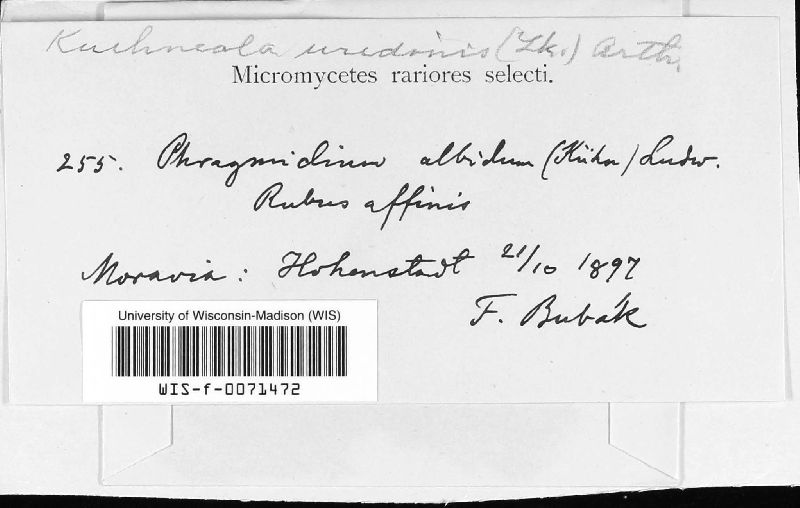 Kuehneola uredinis (Lk.) Arth.
Micromycetes rariores selecti.
255. Phragmidium albidum (Kühn) Ludw.
Rubus affinis
Moravia: Hohenstadt 21/10 1897
F. Bubák
University of Wisconsin-Madison (WIS)
WIS-f-0071472